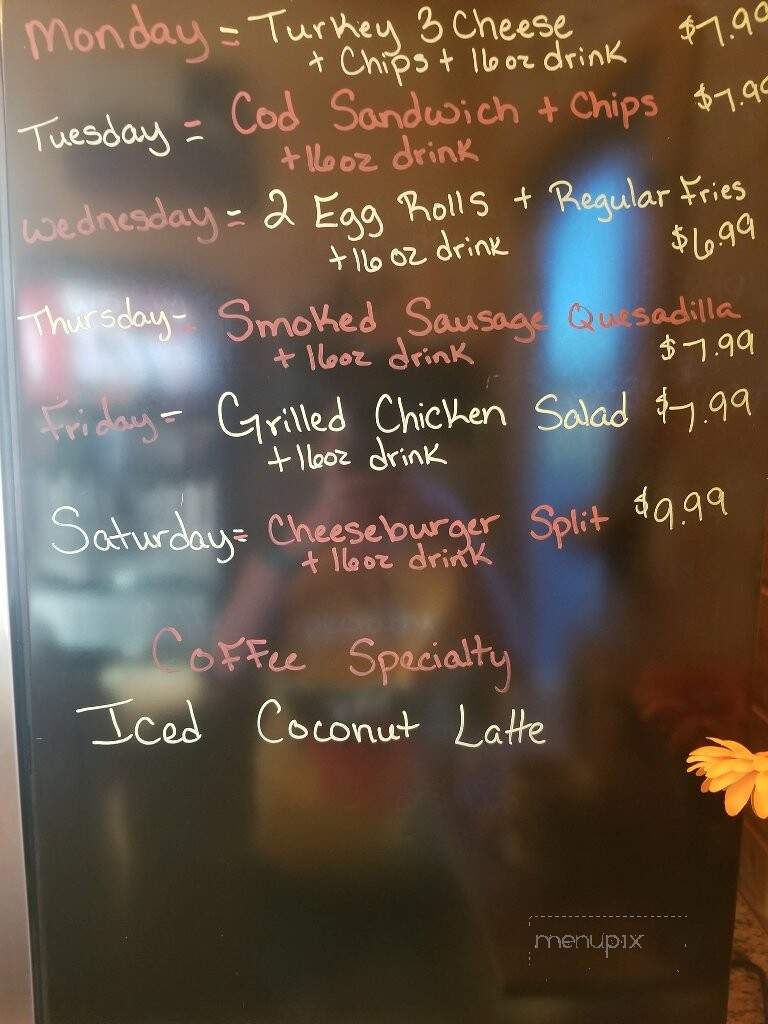 Monday = Turkey 3 Cheese $7.99
+ Chips + 16oz drink
Tuesday = Cod Sandwich + Chips $7.99
+ 16oz drink
Wednesday = 2 Egg Rolls + Regular Fries
+ 16 oz drink $6.99
Thursday = Smoked Sausage Quesadilla
+ 16oz drink $7.99
Friday = Grilled Chicken Salad $7.99
+ 16oz drink
Saturday = Cheeseburger Split $9.99
+ 16oz drink
Coffee Specialty
Iced Coconut Latte
menupix